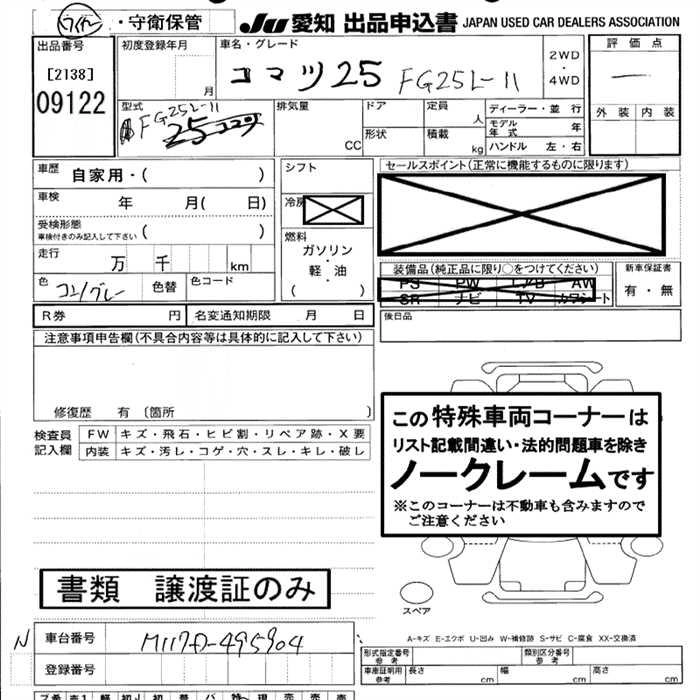 ・守衛保管
JU 愛知 出品申込書 JAPAN USED CAR DEALERS ASSOCIATION
出品番号
[2138]
09122
初度登録年月
月
車名・グレード
コマツ25 FG25L-11
2WD
・
4WD
評価点
外装 内装
型式
FG25L-11
排気量
CC
ドア
形状
定員
人
積載
kg
ディーラー・並行
モデル年式 年
ハンドル 左・右
車歴
自家用・( )
車検 年 月( 日)
受検形態
車検付きのみ記入して下さい ( )
走行 万 千 km
色 コン/グレー 色替 色コード
シフト
冷房
燃料
ガソリン
・
軽・油
( )
セールスポイント(正常に機能するものに限ります)
装備品(純正品に限り○をつけてください)
PS PW エアB AW
SR ナビ TV カワシート
新車保証書
有・無
R券 円 名変通知期限 月 日
後日品
注意事項申告欄(不具合内容等は具体的に記入して下さい)
修復歴 有 〔箇所 〕
検査員
記入欄
FW キズ・飛石・ヒビ割・リペア跡・X要
内装 キズ・汚レ・コゲ・穴・スレ・キレ・破レ
この特殊車両コーナーは
リスト記載間違い・法的問題車を除き
ノークレームです
※このコーナーは不動車も含みますので
ご注意ください
書類 譲渡証のみ
スペア
A-キズ E-エクボ U-凹み W-補修跡 S-サビ C-腐食 XX-交換済
N 車台番号 M117D-495904
登録番号
形式指定番号
参考
類別区分番号
参考
車庫証明用
参考
長さ cm 幅 cm 高さ cm